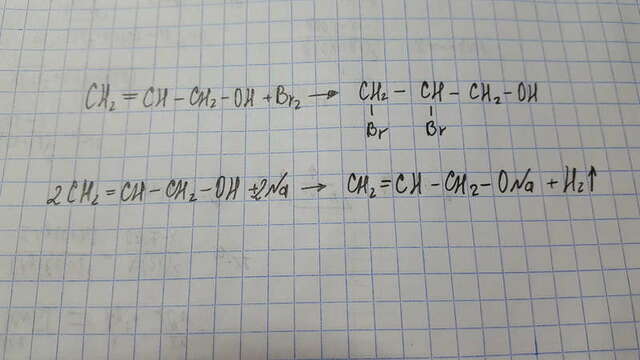 CH₂ = CH – CH₂ – OH + Br₂ → CH₂ – CH – CH₂ – OH
Br Br
2CH₂ = CH – CH₂ – OH + 2Na → CH₂ = CH – CH₂ – ONa + H₂↑